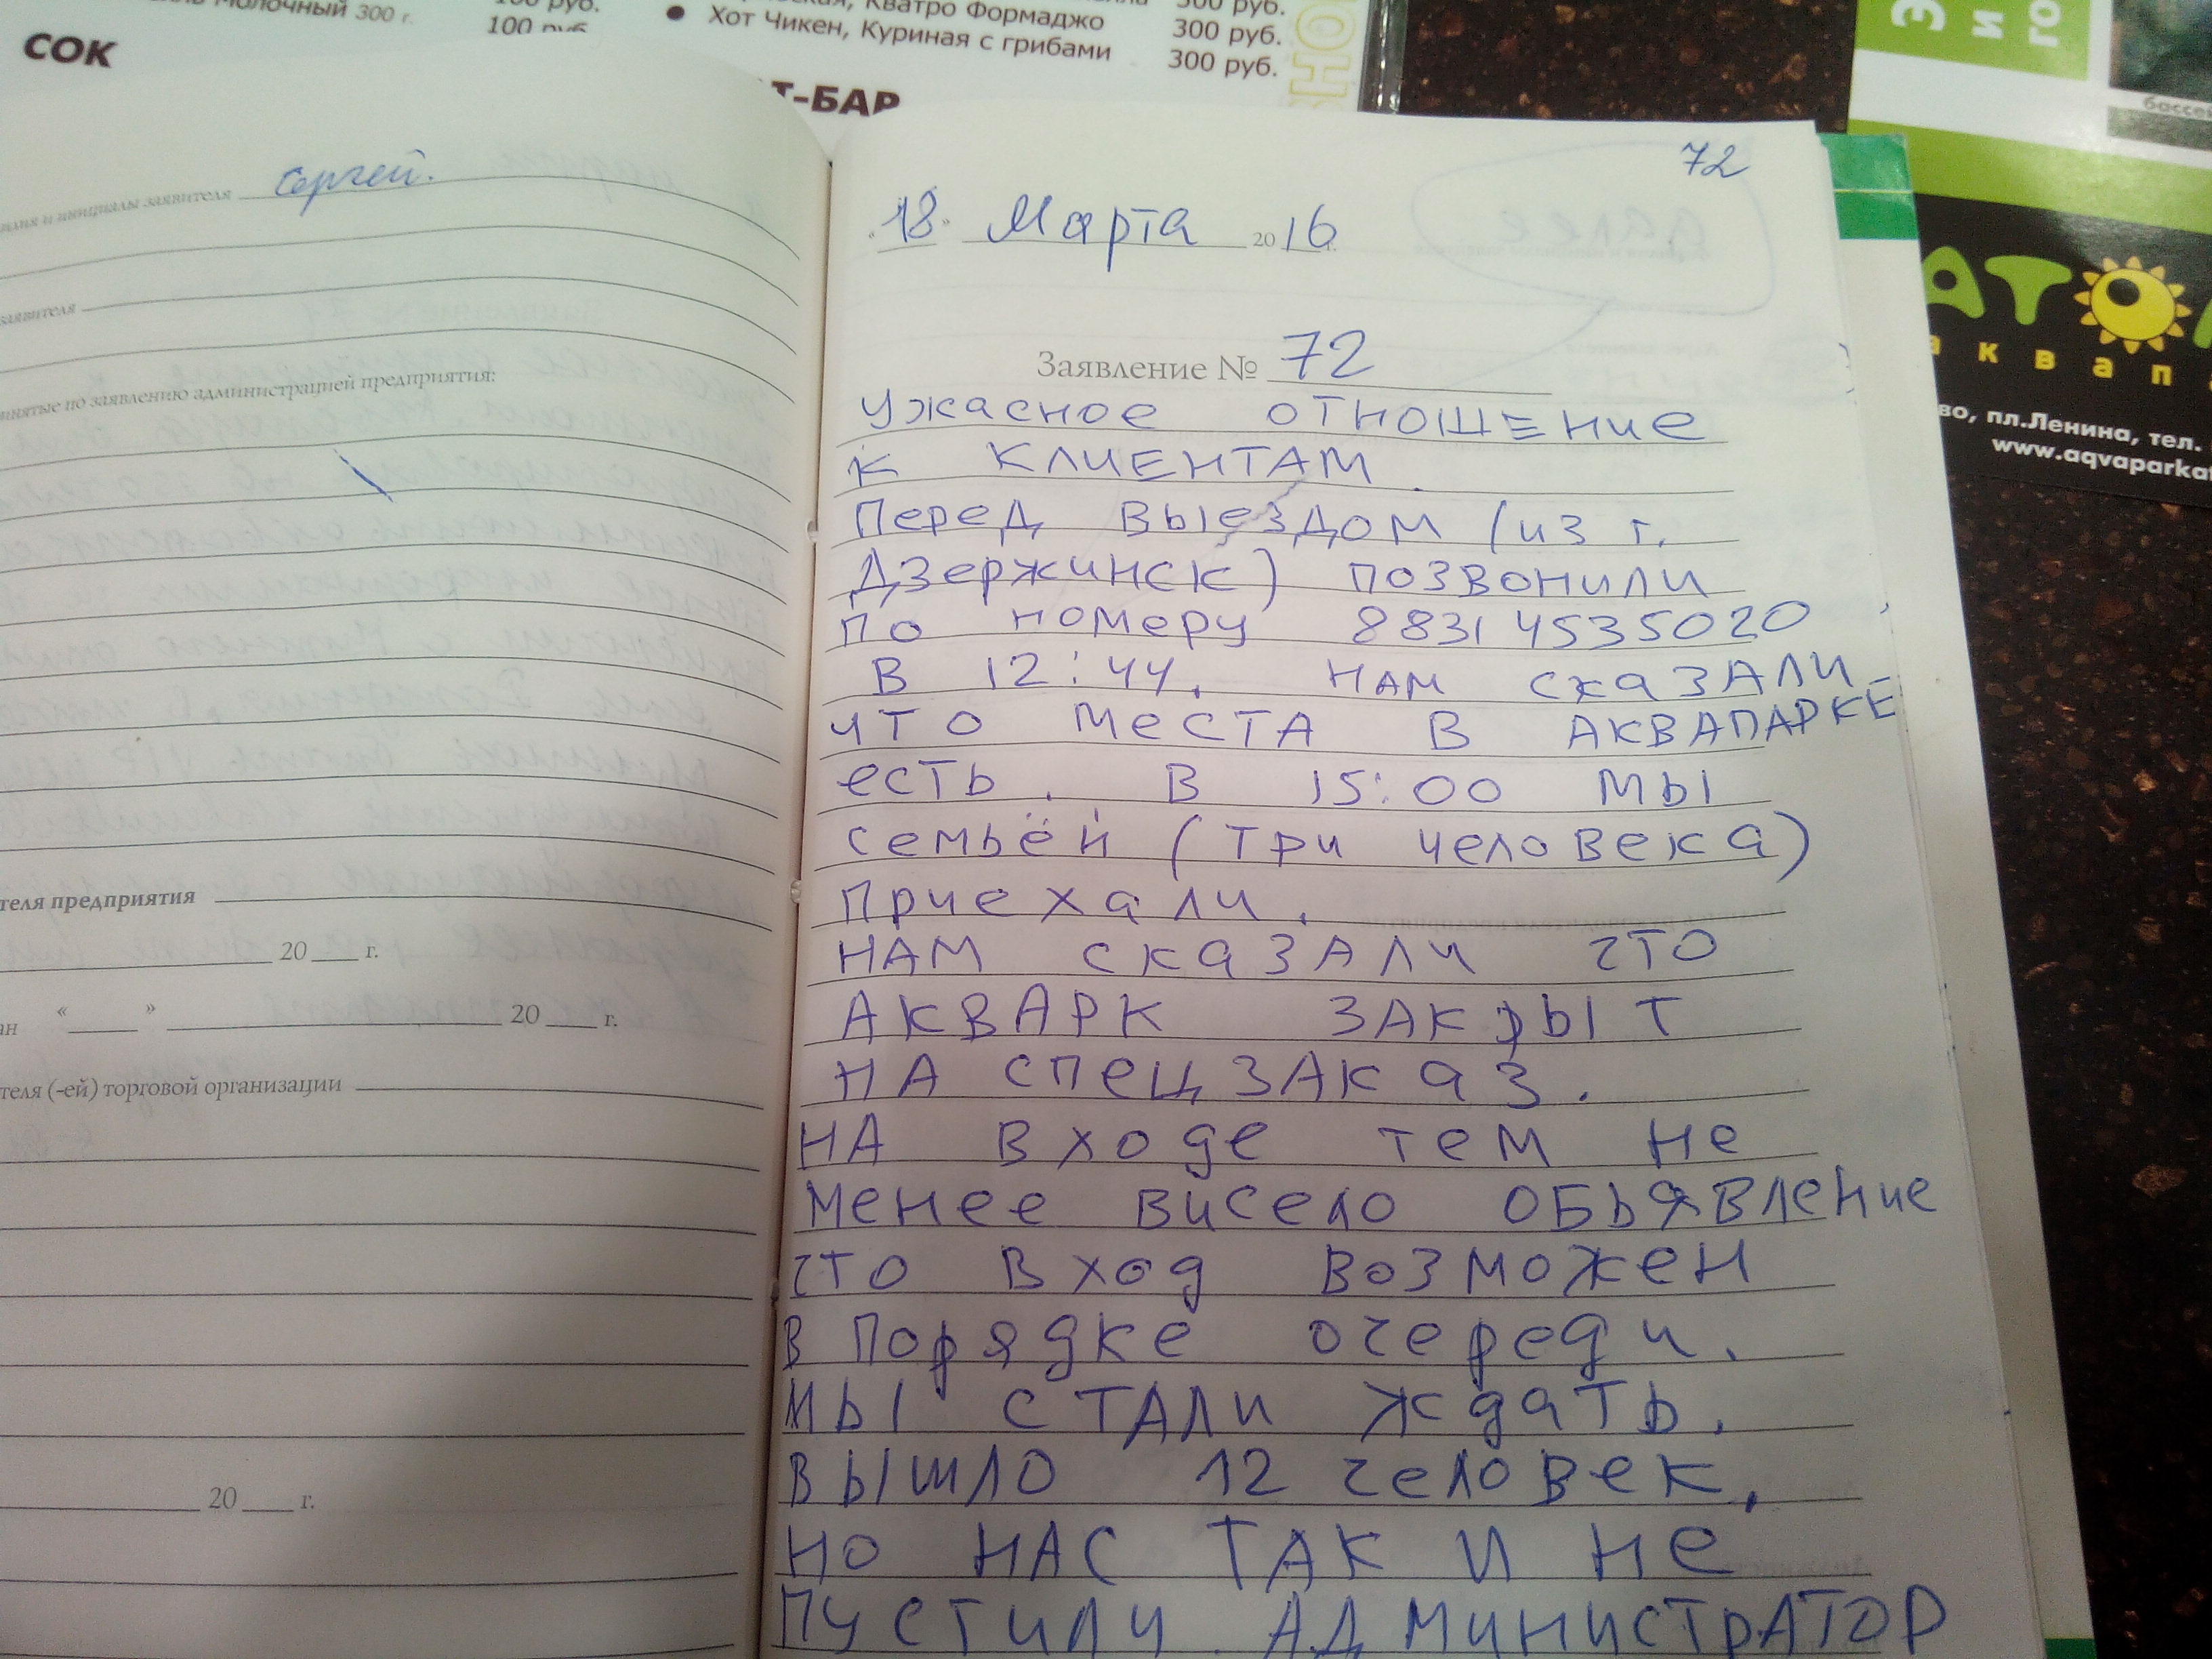 Молочный 300 г.
100 руб.
СОК
Кватро Формаджо
300 руб.
Хот Чикен, Куриная с грибами
300 руб.
Т-БАР
и инициалы заявителя Сергей.
заявителя
по заявлению администрацией предприятия:
предприятия
20 г.
« » 20 г.
(-ей) торговой организации
20 г.
72
"18" Марта 2016 г.
Заявление № 72
Ужасное отношение
к клиентам.
Перед выездом (из г.
Дзержинск) позвонили
по номеру 88314535020
в 12:44. нам сказали
что места в аквапарке
есть. в 15:00 мы
семьёй (три человека)
приехали.
нам сказали что
АКВАРК закрыт
на спецзаказ.
на входе тем не
менее висело обьявление
что вход возможен
в порядке очереди.
мы стали ждать.
вышло 12 человек,
но нас так и не
пустили. Администратор
пл.Ленина, тел.
www.aqvaparka